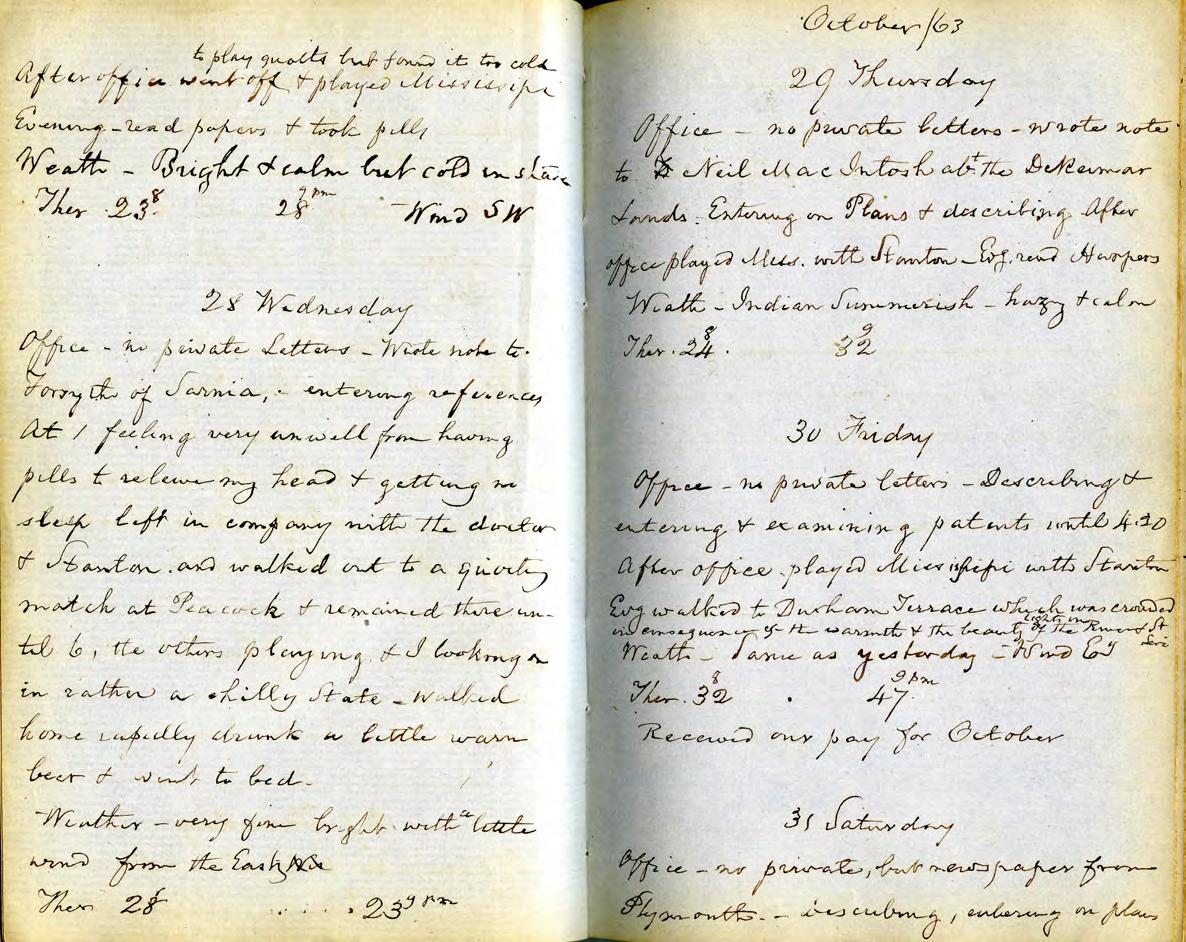 to play quoits but found it too cold
After office went off & played Mississipi
Evening - read papers & took pills
Weath - Bright & calm but cold in shade
Ther 23 8 28 9 pm Wind SW
28 Wednesday
Office - no private Letters - Wrote note to
Forsyth of Sarnia, - entering references
At 1 feeling very unwell from having
pills to releive my head & getting no
sleep left in company with the doctor
& Stanton and walked out to a quoiting
match at Peacock & remained there un-
til 6, the others playing & I looking on
in rather a chilly State - walked
home rapidly drunk a little warm
beer & went to bed.
Weather - very fine bright with a little
wind from the East
Ther 28 8 . . . . . 23 9 pm
October /63
29 Thursday
Office - no private letters - wrote note
to Neil MacIntosh abt. the
Lands. Entering on Plans & describing After
office played Miss. with Stanton - Evg. read Harpers
Weath - Indian Summerish - hazy & calm
Ther. 24 8. 32 9
30 Friday
Office - no private letters - Describing &
entering & examining patents until 4.20
After office played Missisipi with Stanton
Evg walked to Durham Terrace which was crowded
in consequence of the warmth & the beauty of the lights in the River St
Weath - Same as yesterday - Wind
Ther. 32 8 . 47 9 pm
Received our pay for October
31 Saturday
Office - no private, but newspaper from
Plymouth. - describing, entering on plans